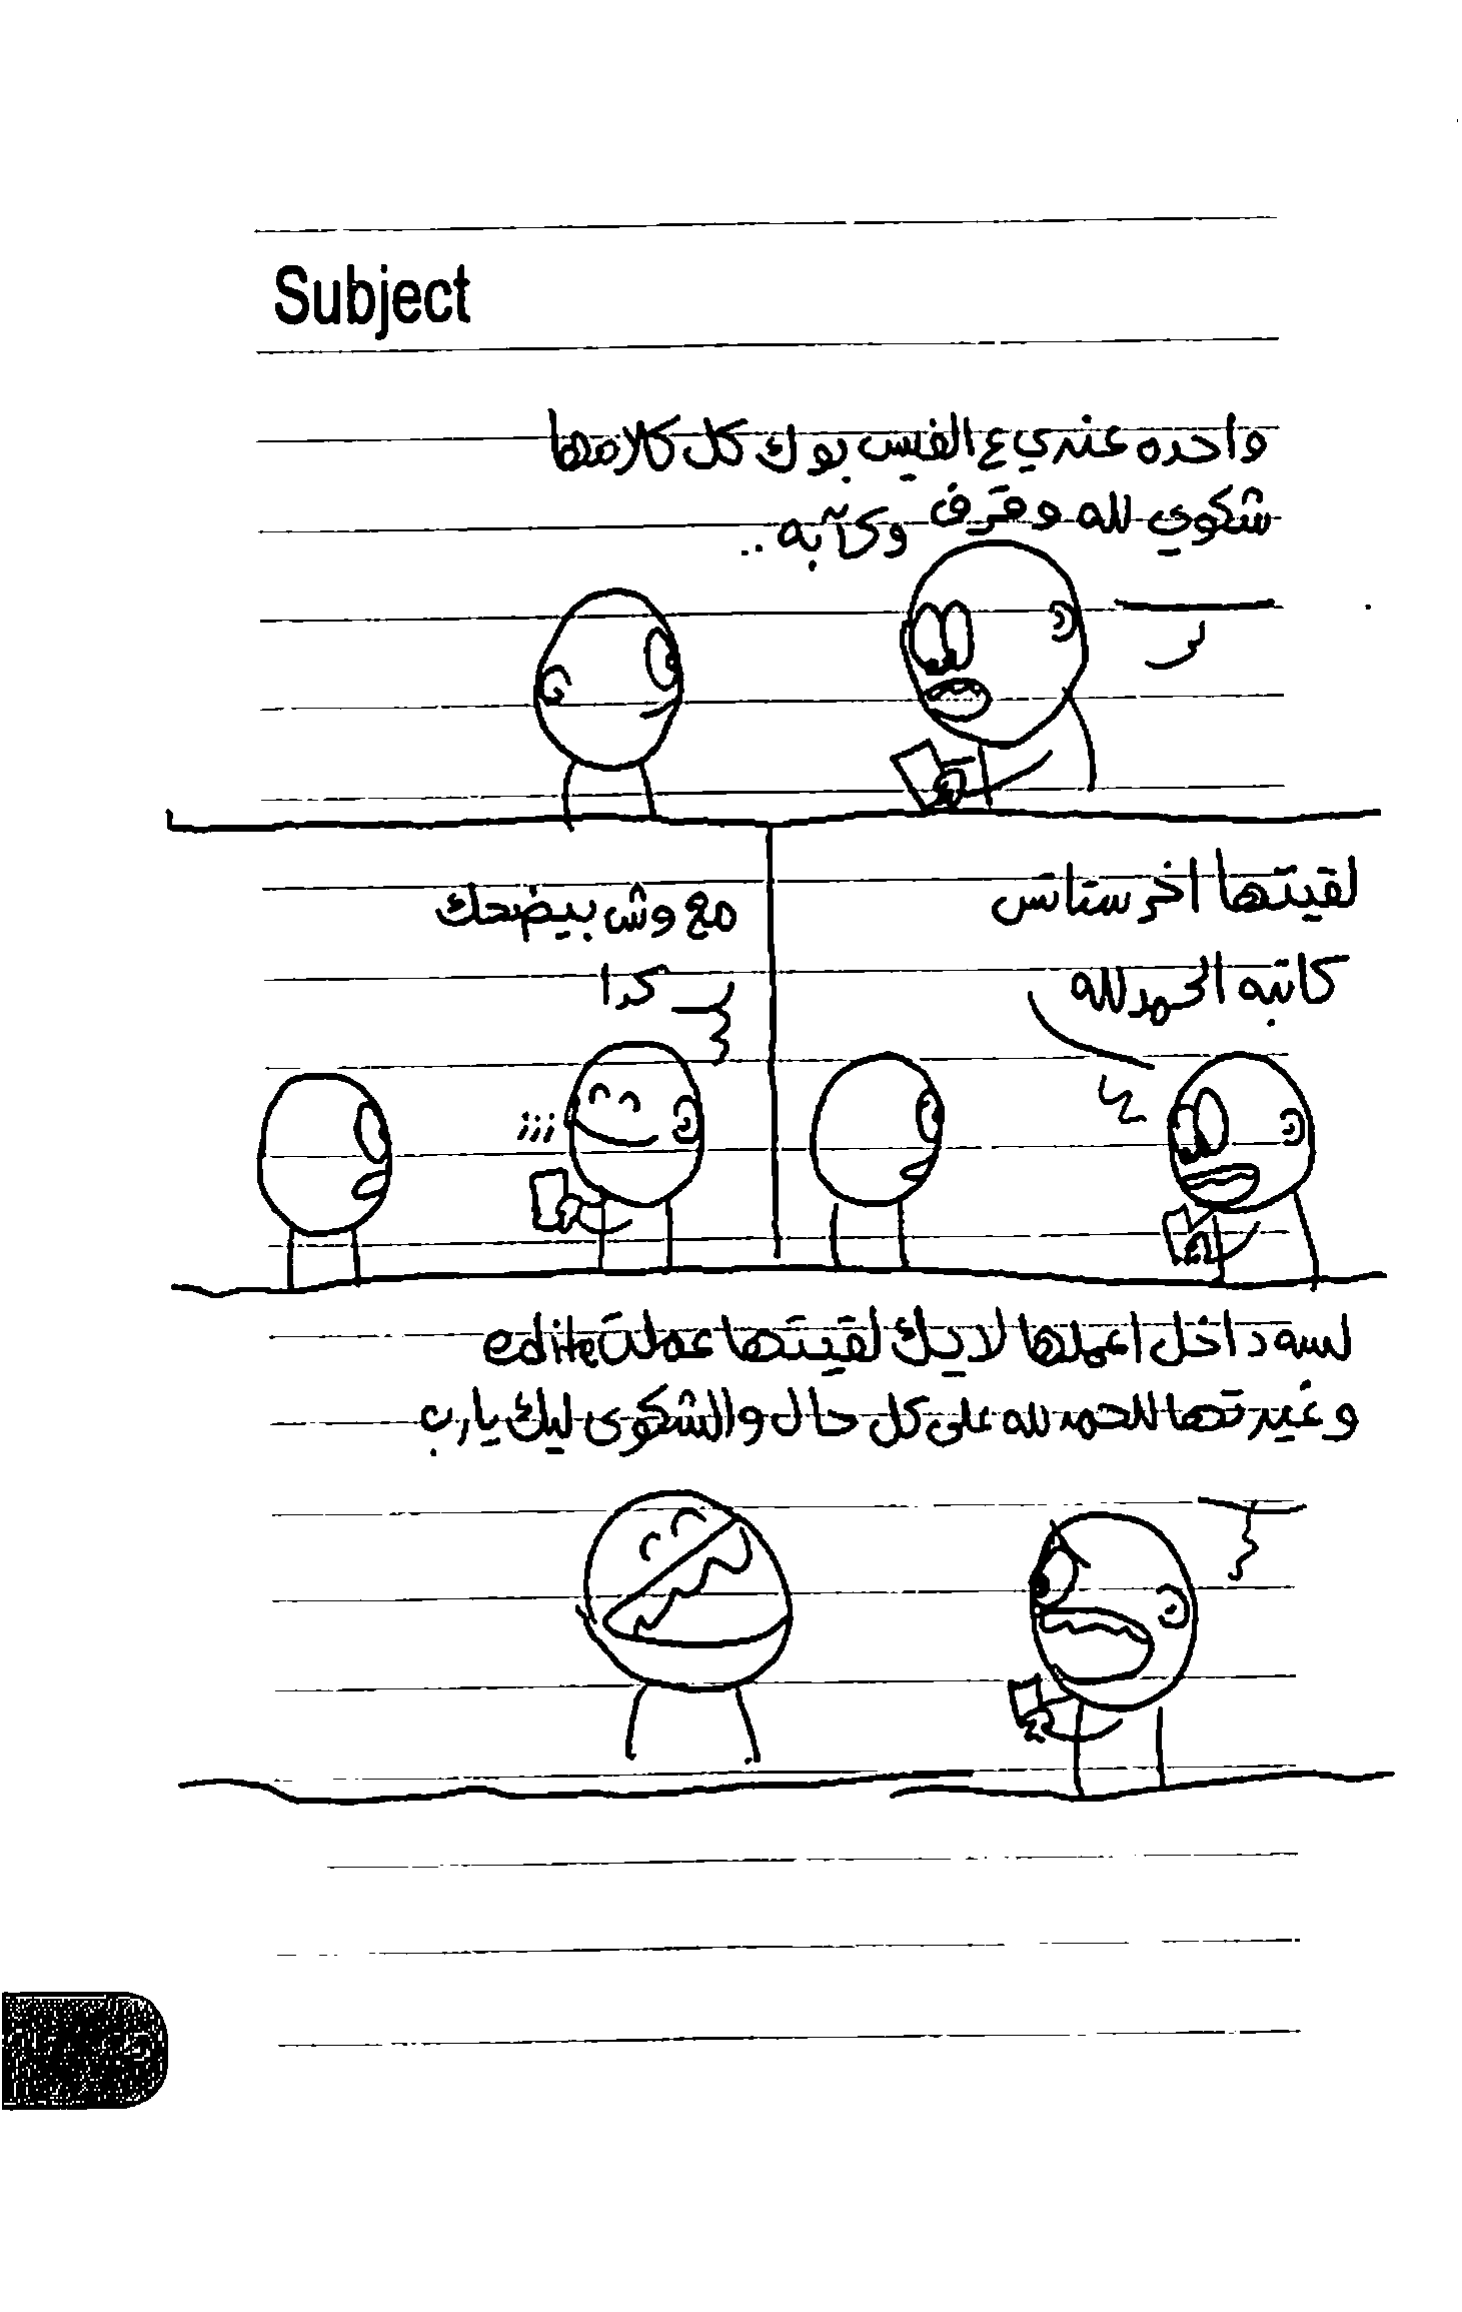 Subject
واحده عندي ع الفيس بوك كل كلامها
شكوي لله وقرف وكآبه ..
لقيتها اخر ستاتس
كاتبه الحمد لله
مع وش بيضحك
كدا
لسه داخل اعملها لايك لقيتها عملت edite
وغيرتها للحمد لله على كل حال والشكوى ليك يارب